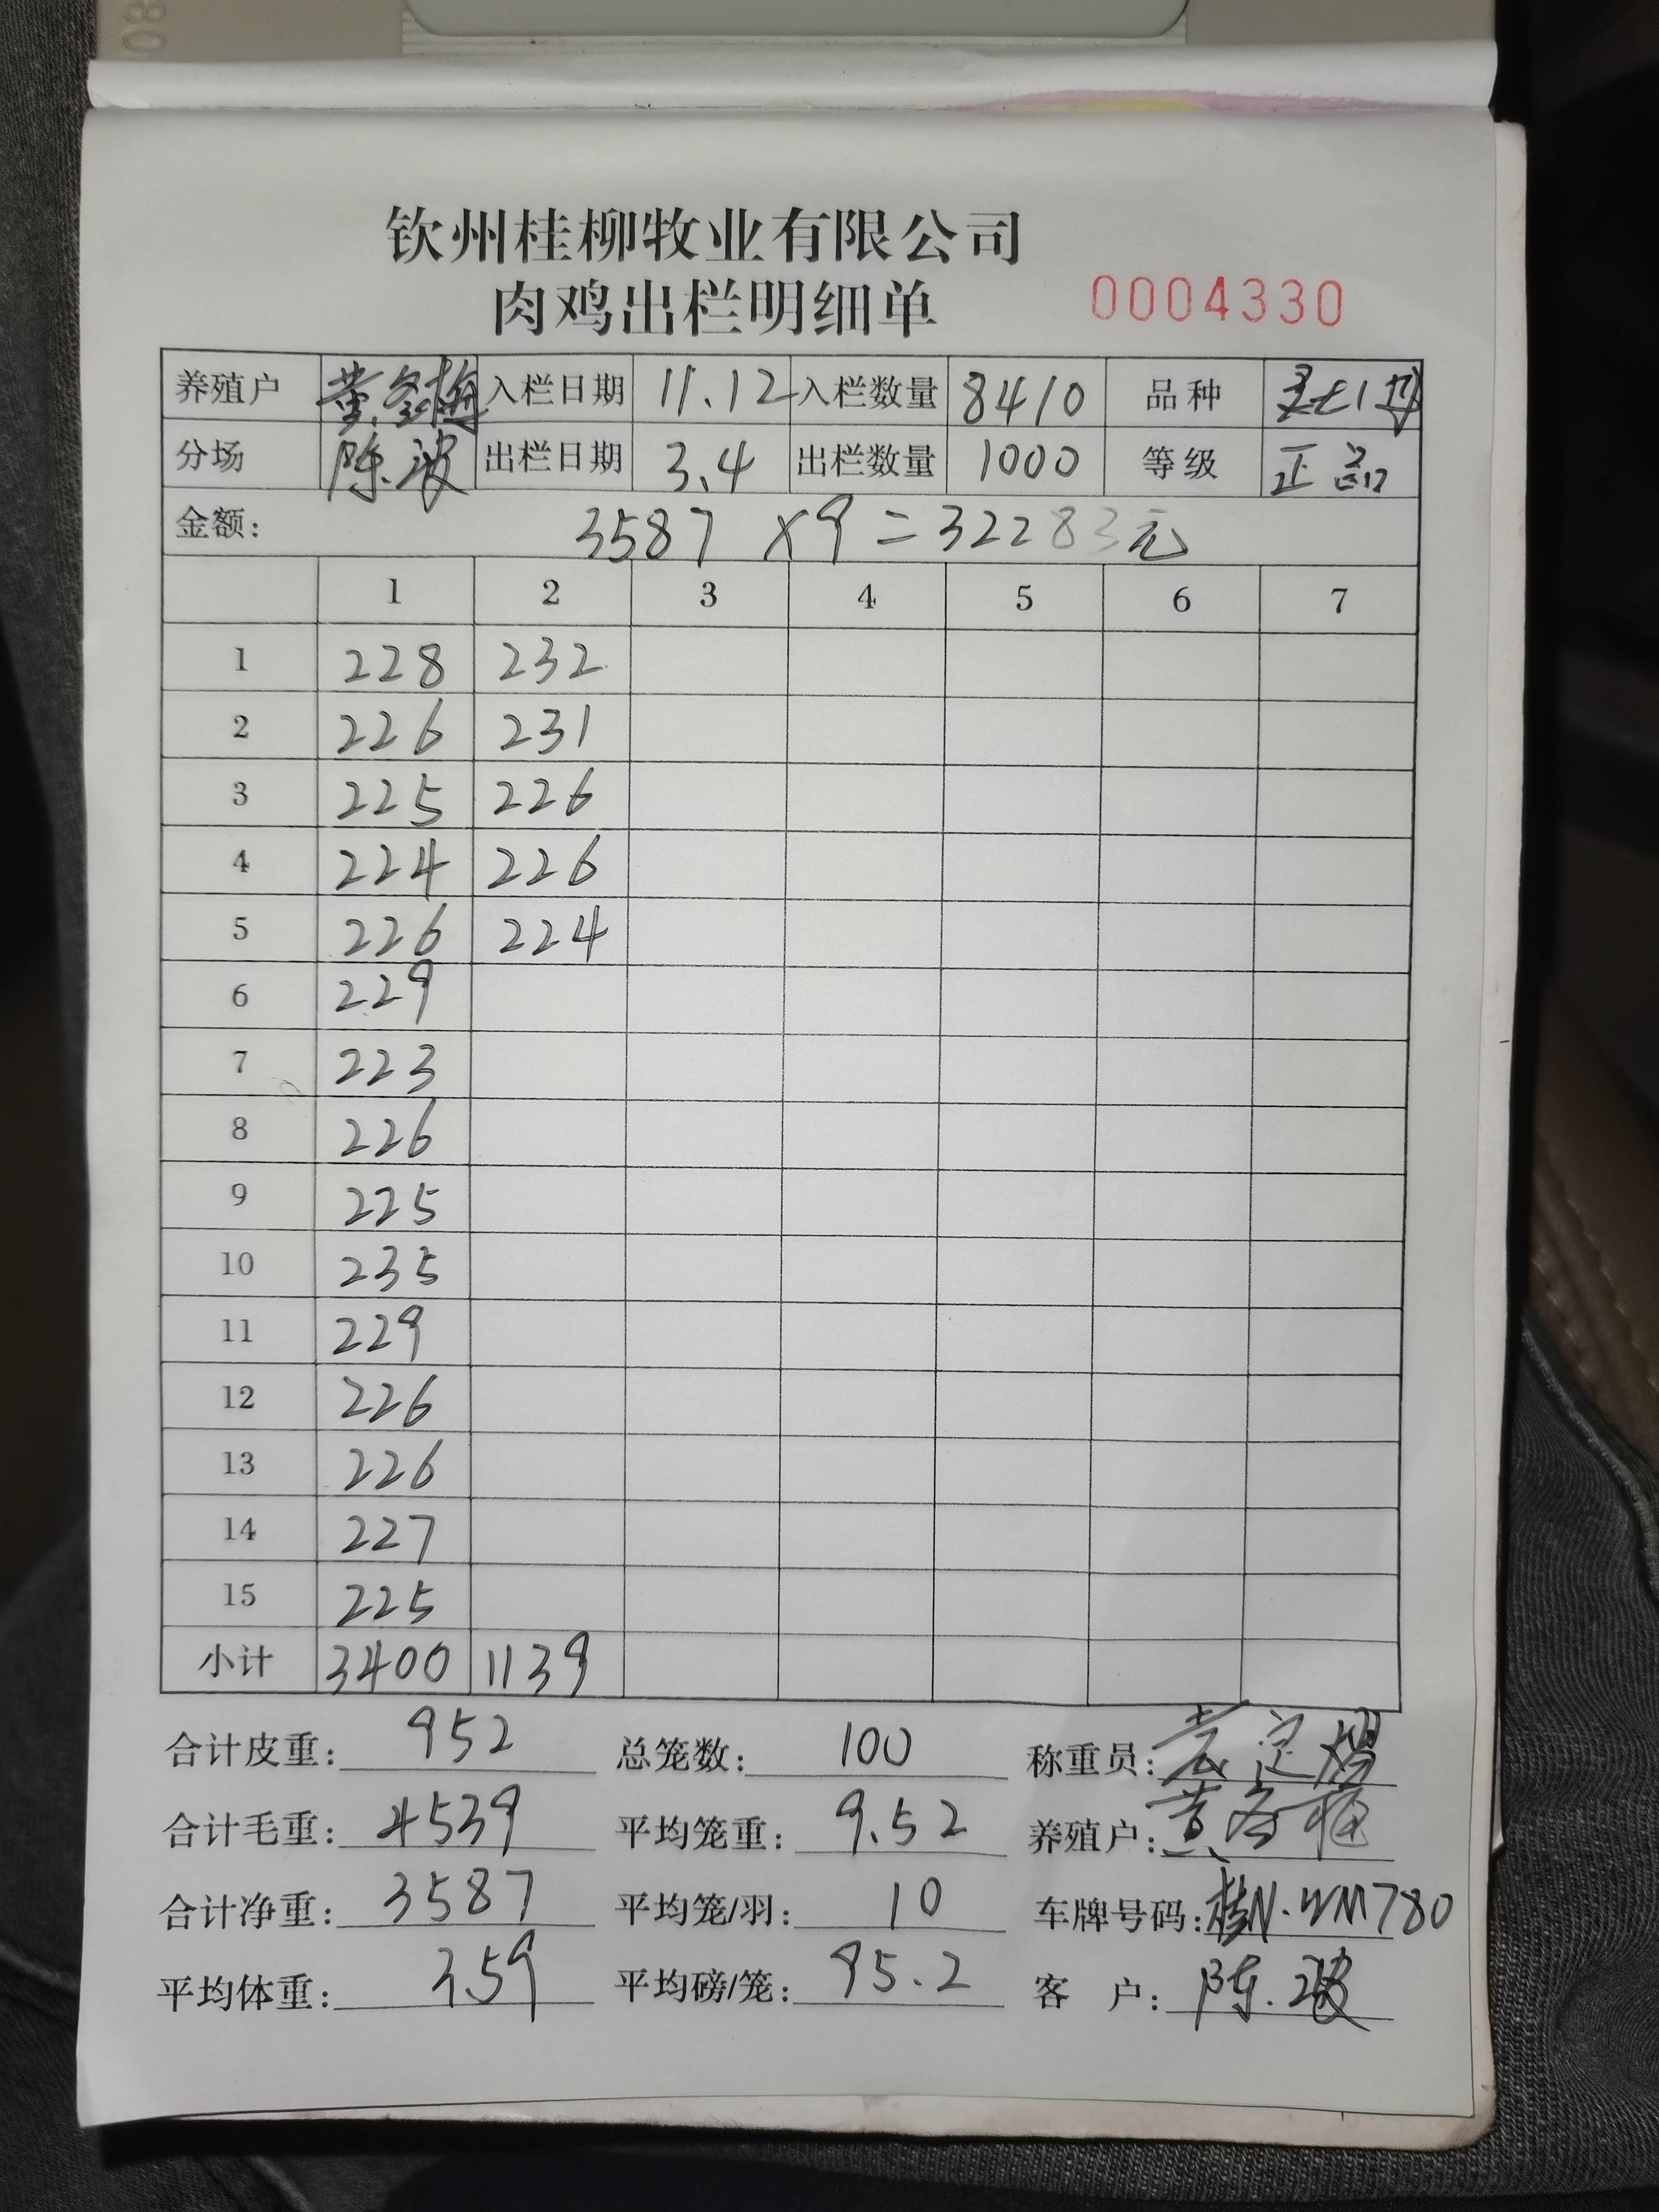 钦州桂柳牧业有限公司
肉鸡出栏明细单 0004330
养殖户 黄冬梅 入栏日期 11.12 入栏数量 8410 品种
分场 陈波 出栏日期 3.4 出栏数量 1000 等级 正品
金额: 3587 × 9 = 32283元
1 2 3 4 5 6 7
1 228 232
2 226 231
3 225 226
4 224 226
5 226 224
6 229
7 223
8 226
9 225
10 235
11 229
12 226
13 226
14 227
15 225
小计 3400 1139
合计皮重: 952 总笼数: 100 称重员:
合计毛重: 4539 平均笼重: 9.52 养殖户: 黄冬梅
合计净重: 3587 平均笼/羽: 10 车牌号码: 桂N·WM780
平均体重: 3.59 平均磅/笼: 95.2 客 户: 陈波